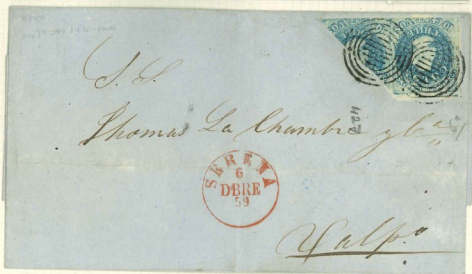 S. S.
Thomas La Chambre y Ca
SERENA
6
DBRE
59
Valpo